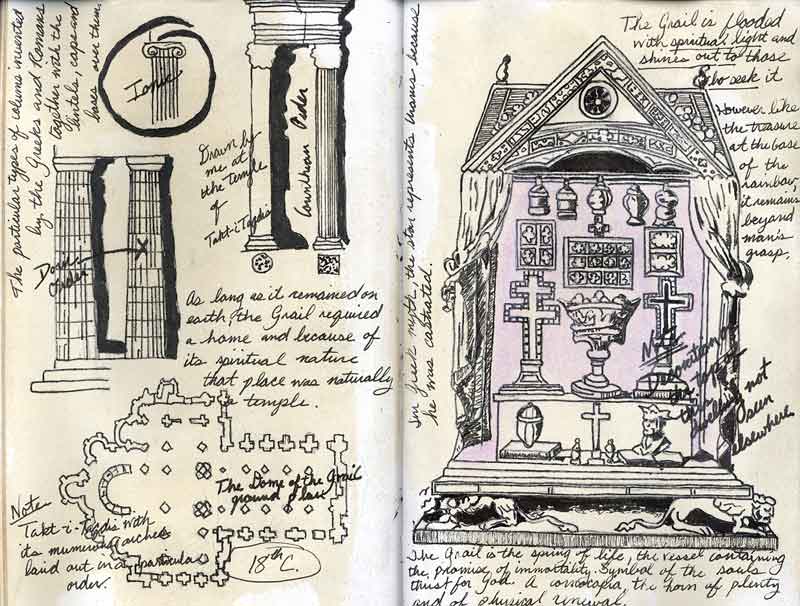 The particular types of column invented
by the Greeks and Romans
together with the
lintels, caps and
bases over them.
Ionic
Drawn by
me at
the temple
of
Takt-i-Taqdis
Corinthian Order
Doric
order
As long as it remained on
earth, the Grail required
a home and because of
its spiritual nature
that place was naturally
a temple.
The Dome of the Grail
ground plan
Note
Takt-i-Taqdis with
its numerous arches
laid out in a particular
order.
18th C.
In Greek myth, the star represents Uranis because
he was castrated.
The Grail is flooded
with spiritual light and
shines out to those
who seek it
However like
the treasure
at the base
of the
rainbow,
it remains
beyond
man's
grasp.
Note
Decoration on
seen
elsewhere
The Grail is the spring of life, the vessel containing
the promise of immortality. Symbol of the souls
thirst for God. A cornocopia, the horn of plenty
and of physical renewal.